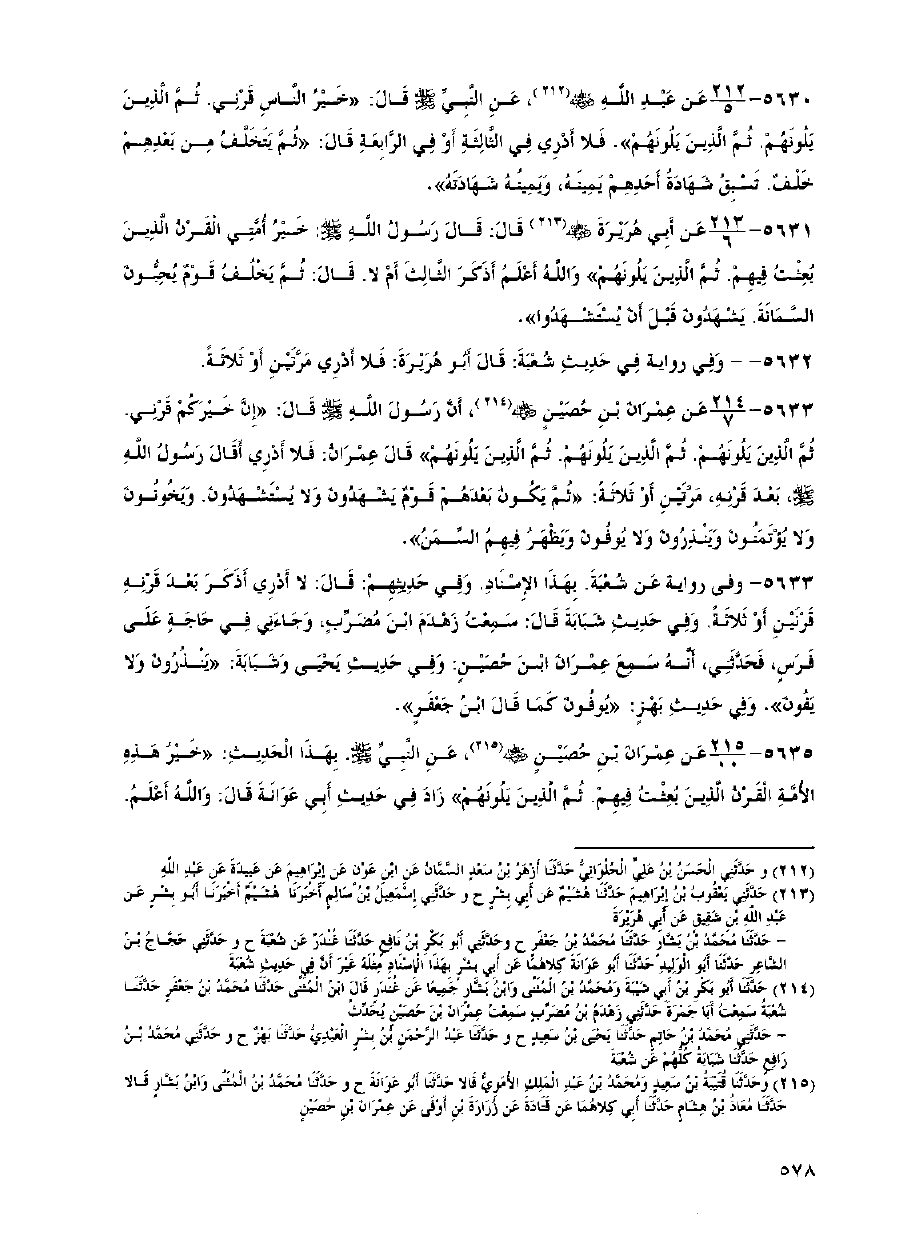 ٥٦٣٠- ٢١٢/٥ عَن عَبْدِ اللَّهِ ﷺ(٢١٢)، عَنِ النَّبِيِّ ﷺ قَالَ: «خَيْرُ النَّاسِ قَرْنِي. ثُمَّ الَّذِينَ
يَلُونَهُمْ. ثُمَّ الَّذِينَ يَلُونَهُمْ». فَلا أَدْرِي فِي الثَّالِثَةِ أَوْ فِي الرَّابِعَةِ قَالَ: «ثُمَّ يَتَخَلَّفُ مِن بَعْدِهِمْ
خَلْفٌ. تَسْبِقُ شَهَادَةُ أَحَدِهِمْ يَمِينَهُ، وَيَمِينُهُ شَهَادَتَهُ».
٥٦٣١- ٢١٣/٦ عَن أَبِي هُرَيْرَةَ ﷺ(٢١٣) قَالَ: قَالَ رَسُولُ اللَّهِ ﷺ: خَيْرُ أُمَّتِي الْقَرْنُ الَّذِينَ
بُعِثْتُ فِيهِمْ. ثُمَّ الَّذِينَ يَلُونَهُمْ» وَاللَّهُ أَعْلَمُ أَذَكَرَ الثَّالِثَ أَمْ لا. قَالَ: ثُمَّ يَخْلُفُ قَوْمٌ يُحِبُّونَ
السَّمَانَةَ. يَشْهَدُونَ قَبْلَ أَنْ يُسْتَشْهَدُوا».
٥٦٣٢- - وَفِي رواية فِي حَدِيثِ شُعْبَةَ: قَالَ أَبُو هُرَيْرَةَ: فَلا أَدْرِي مَرَّتَيْنِ أَوْ ثَلاثَةً.
٥٦٣٣- ٢١٤/٧ عَن عِمْرَانَ بْنِ حُصَيْنٍ ﷺ(٢١٤)، أَنَّ رَسُولَ اللَّهِ ﷺ قَالَ: «إِنَّ خَيْرَكُمْ قَرْنِي.
ثُمَّ الَّذِينَ يَلُونَهُمْ. ثُمَّ الَّذِينَ يَلُونَهُمْ. ثُمَّ الَّذِينَ يَلُونَهُمْ» قَالَ عِمْرَانُ: فَلا أَدْرِي أَقَالَ رَسُولُ اللَّهِ
ﷺ، بَعْدَ قَرْنِهِ، مَرَّتَيْنِ أَوْ ثَلاثَةً: «ثُمَّ يَكُونُ بَعْدَهُمْ قَوْمٌ يَشْهَدُونَ وَلا يُسْتَشْهَدُونَ. وَيَخُونُونَ
وَلا يُؤْتَمَنُونَ وَيَنْذِرُونَ وَلا يُوفُونَ وَيَظْهَرُ فِيهِمُ السِّمَنُ».
٥٦٣٣- وفى رواية عَن شُعْبَةَ. بِهَذَا الإِسْنَادِ. وَفِي حَدِيثِهِمْ: قَالَ: لا أَدْرِي أَذَكَرَ بَعْدَ قَرْنِهِ
قَرْنَيْنِ أَوْ ثَلاثَةً. وَفِي حَدِيثِ شَبَابَةَ قَالَ: سَمِعْتُ زَهْدَمَ ابْنَ مُضَرِّبٍ، وَجَاءَنِي فِي حَاجَةٍ عَلَى
فَرَسٍ، فَحَدَّثَنِي، أَنَّهُ سَمِعَ عِمْرَانَ ابْنَ حُصَيْنٍ: وَفِي حَدِيثِ يَحْيَى وَشَبَابَةَ: «يَنْذُرُونَ وَلا
يَفُونَ». وَفِي حَدِيثِ بَهْزٍ: «يُوفُونَ كَمَا قَالَ ابْنُ جَعْفَرٍ».
٥٦٣٥- ٢١٥ عَن عِمْرَانَ بْنِ حُصَيْنٍ ﷺ(٢١٥)، عَنِ النَّبِيِّ ﷺ. بِهَذَا الْحَدِيثِ: «خَيْرُ هَذِهِ
الأُمَّةِ الْقَرْنُ الَّذِينَ بُعِثْتُ فِيهِمْ. ثُمَّ الَّذِينَ يَلُونَهُمْ» زَادَ فِي حَدِيثِ أَبِي عَوَانَةَ قَالَ: وَاللَّهُ أَعْلَمُ.
(٢١٢) و حَدَّثَنِي الْحَسَنُ بْنُ عَلِيٍّ الْحُلْوَانِيُّ حَدَّثَنَا أَزْهَرُ بْنُ سَعْدٍ السَّمَّانُ عَن ابْنِ عَوْنٍ عَن إِبْرَاهِيمَ عَن عَبِيدَةَ عَن عَبْدِ اللَّهِ
(٢١٣) حَدَّثَنِي يَعْقُوبُ بْنُ إِبْرَاهِيمَ حَدَّثَنَا هُشَيْمٌ عَن أَبِي بِشْرٍ ح و حَدَّثَنِي إِسْمَعِيلُ بْنُ سَالِمٍ أَخْبَرَنَا هُشَيْمٌ أَخْبَرَنَا أَبُو بِشْرٍ عَن
عَبْدِ اللَّهِ بْنِ شَقِيقٍ عَن أَبِي هُرَيْرَةَ
- حَدَّثَنَا مُحَمَّدُ بْنُ بَشَّارٍ حَدَّثَنَا مُحَمَّدُ بْنُ جَعْفَرٍ ح وحَدَّثَنِي أَبُو بَكْرِ بْنُ نَافِعٍ حَدَّثَنَا غُنْدَرٌ عَن شُعْبَةَ ح و حَدَّثَنِي حَجَّاجُ بْنُ
الشَّاعِرِ حَدَّثَنَا أَبُو الْوَلِيدِ حَدَّثَنَا أَبُو عَوَانَةَ كِلاهُمَا عَن أَبِي بِشْرٍ بِهَذَا الإِسْنَادِ مِثْلَهُ غَيْرَ أَنَّ فِي حَدِيثِ شُعْبَةَ
(٢١٤) حَدَّثَنَا أَبُو بَكْرِ بْنُ أَبِي شَيْبَةَ وَمُحَمَّدُ بْنُ الْمُثَنَّى وَابْنُ بَشَّارٍ جَمِيعًا عَن غُنْدَرٍ قَالَ ابْنُ الْمُثَنَّى حَدَّثَنَا مُحَمَّدُ بْنُ جَعْفَرٍ حَدَّثَنَا
شُعْبَةُ سَمِعْتُ أَبَا جَمْرَةَ حَدَّثَنِي زَهْدَمُ بْنُ مُضَرِّبٍ سَمِعْتُ عِمْرَانَ بْنَ حُصَيْنٍ يُحَدِّثُ
- حَدَّثَنِي مُحَمَّدُ بْنُ حَاتِمٍ حَدَّثَنَا يَحْيَى بْنُ سَعِيدٍ ح و حَدَّثَنَا عَبْدُ الرَّحْمَنِ بْنُ بِشْرٍ الْعَبْدِيُّ حَدَّثَنَا بَهْزٌ ح و حَدَّثَنِي مُحَمَّدُ بْنُ
رَافِعٍ حَدَّثَنَا شَبَابَةُ كُلُّهُمْ عَن شُعْبَةَ
(٢١٥) وَحَدَّثَنَا قُتَيْبَةُ بْنُ سَعِيدٍ وَمُحَمَّدُ بْنُ عَبْدِ الْمَلِكِ الأُمَوِيُّ قَالا حَدَّثَنَا أَبُو عَوَانَةَ ح و حَدَّثَنَا مُحَمَّدُ بْنُ الْمُثَنَّى وَابْنُ بَشَّارٍ قَالا
حَدَّثَنَا مُعَاذُ بْنُ هِشَامٍ حَدَّثَنَا أَبِي كِلاهُمَا عَن قَتَادَةَ عَن زُرَارَةَ بْنِ أَوْفَى عَن عِمْرَانَ بْنِ حُصَيْنٍ
٥٧٨